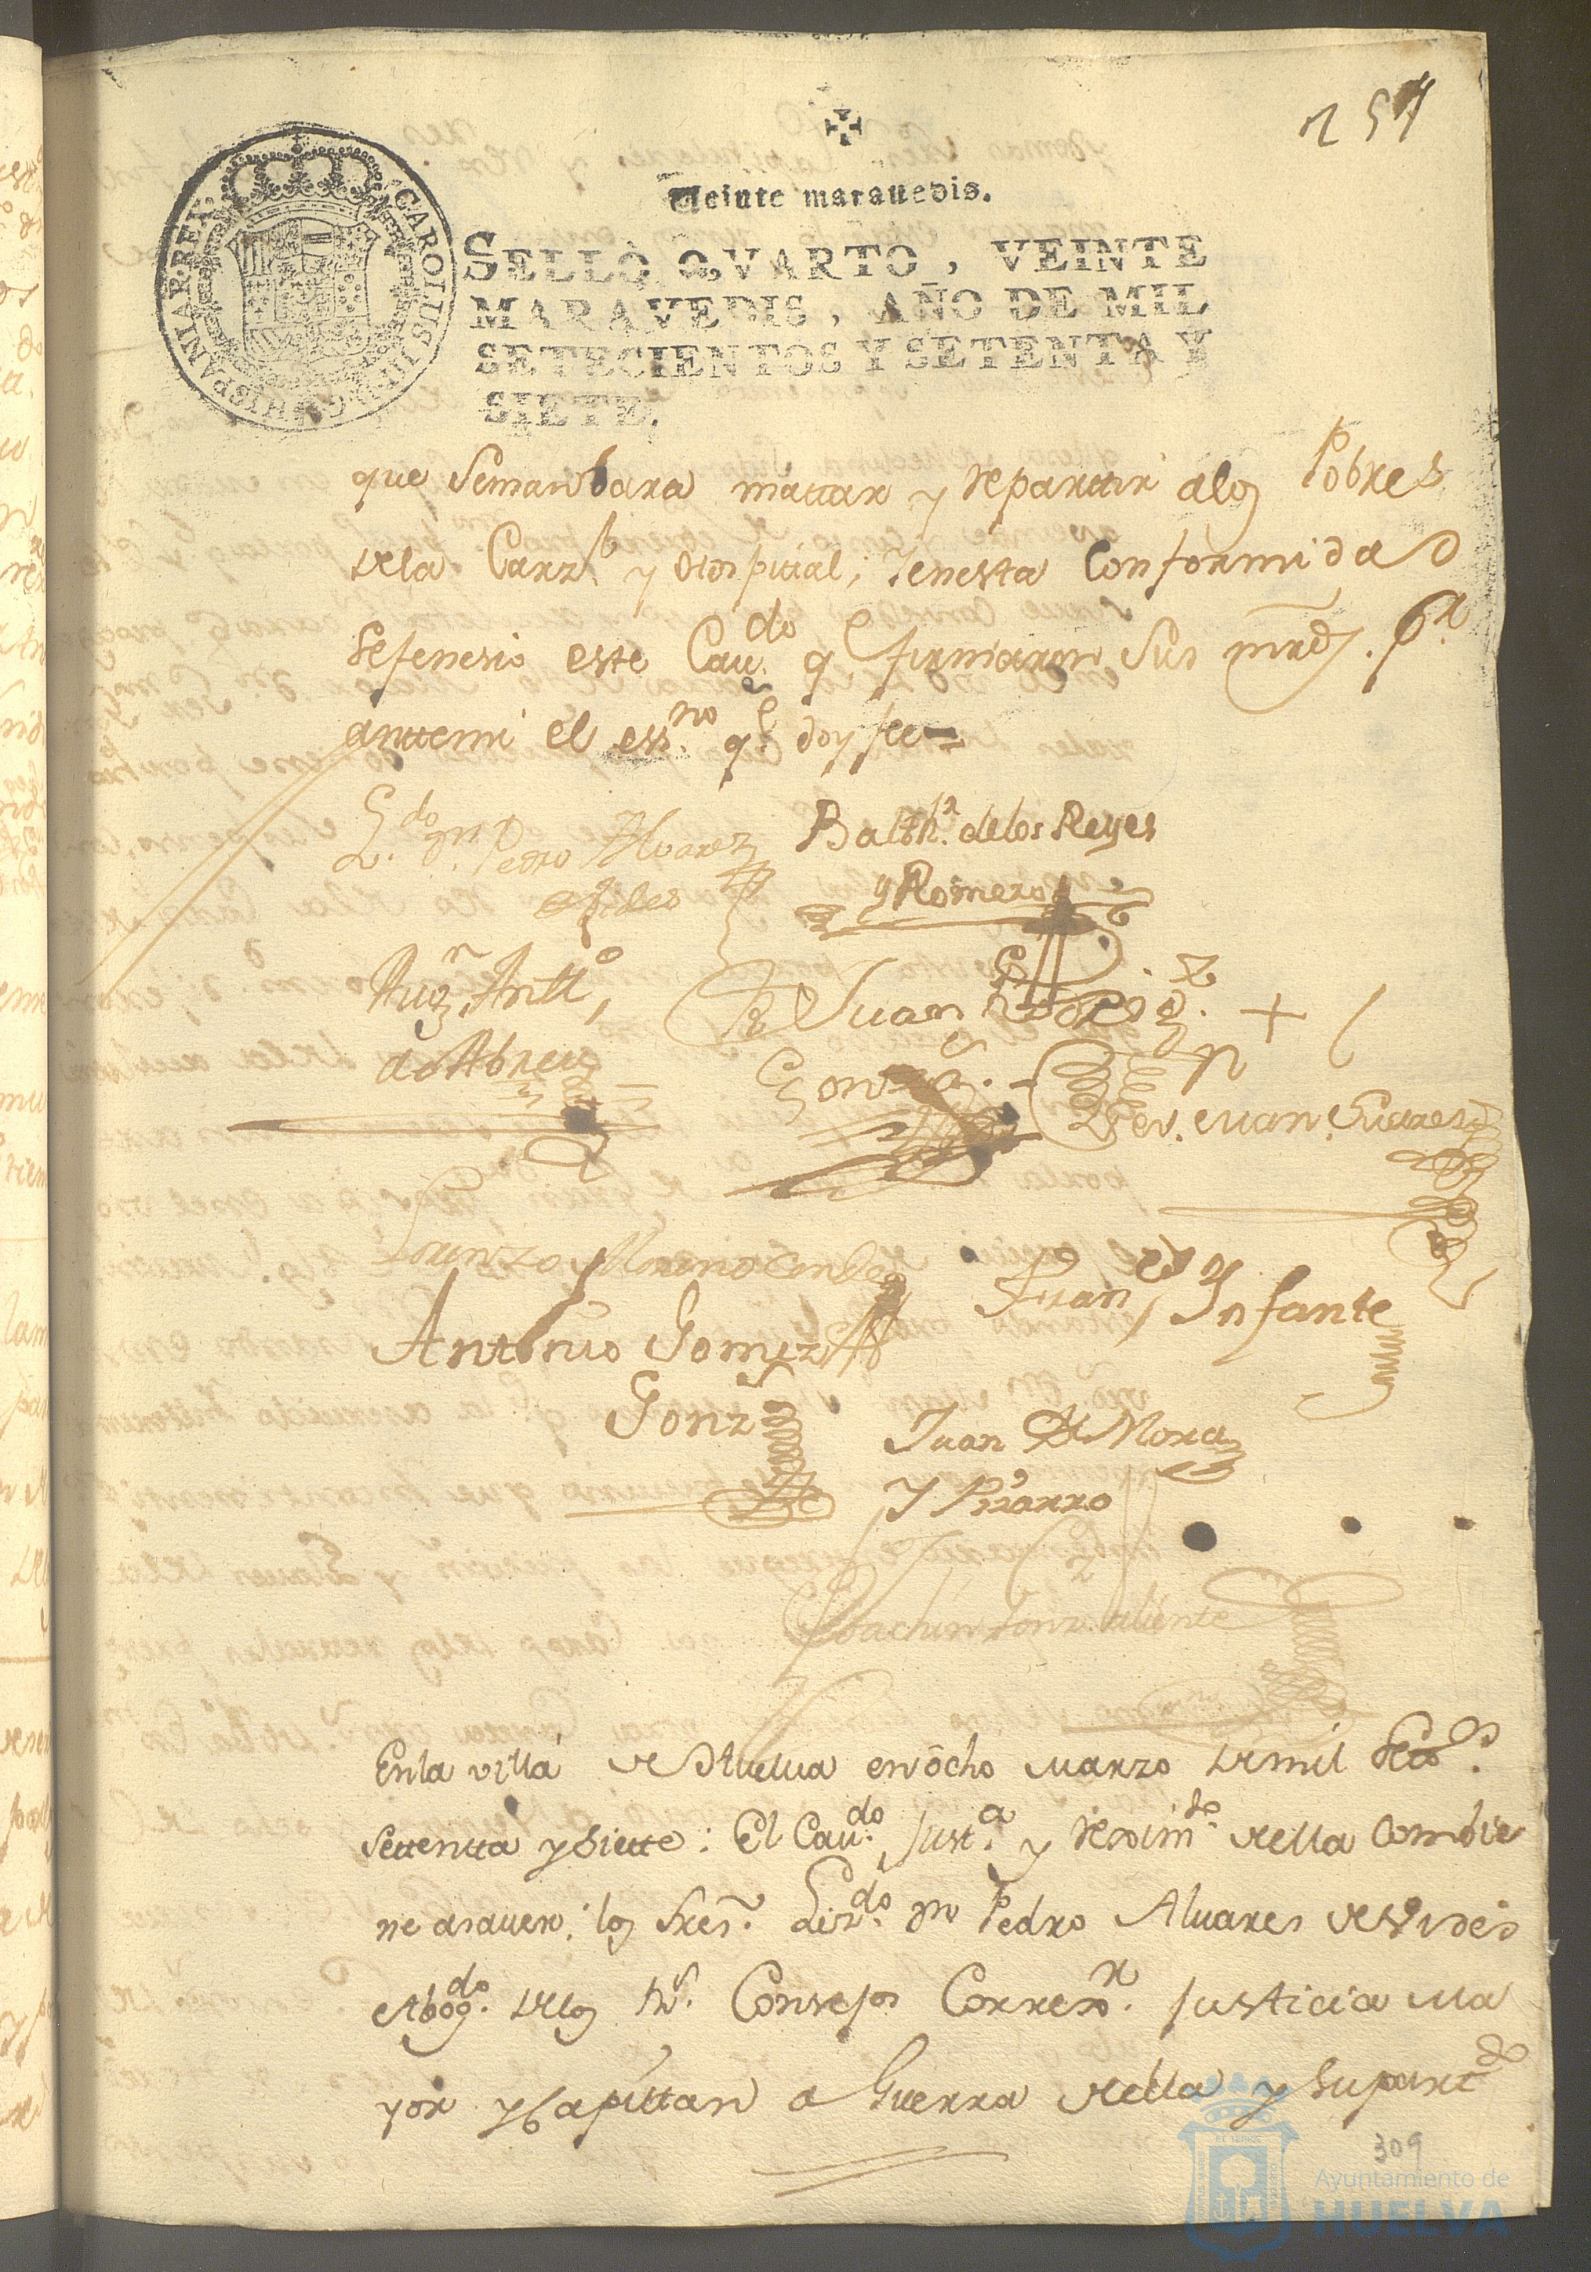 254
Veinte marauedis.
CAROLUS III D.G. HISPANIAR. REX
SELLO QVARTO, VEINTE
MARAVEDIS, AÑO DE MIL
SETECIENTOS Y SETENTA Y
SIETE.
que Semandara mattar y repartir alos Pobres
dela Carzl. y Ospicial; Yenesta Conformidad
sefenesio este Caudo. q firmaron Sus mrds. Pr.
anttemi el essno. qe. doy fee=
Ldo. Dn. Pedro Alvarez
Balthr. delos Reyes
y Romero
Antto.
de Abreu
Juan Rodrigz.
Gonzz.
Juan Suarez
Lorenzo Moreno Conde
Juan Ynfante
Antonio Gomez
Gonz
Juan De Mora
Y Pizarro
Joachin Gonz. aliente
Enla villa de Huelva en ocho marzo de mil settos.
settentta ysiette: El Caudo. Justa. y reximto. della combie
ne asauer; los Sres. Lizdo. Dn Pedro Alvares
Abogdo. delos Rs. Consejos Correxor. Justicia ma
yor y Capittan a Guerra della y Supartdo
309
Ayuntamiento de
HUELVA